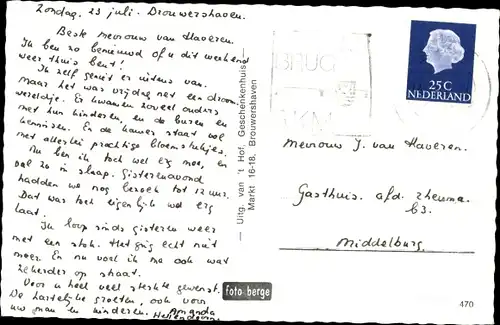 Zondag. 23 juli. Brouwershaven.
Beste mevrouw van Haveren.
Ik ben zo benieuwd of u dit weekend
weer thuis bent!
Ik zelf geniet er uiterst van.
Maar het was vrijdag net een droom
wereldje. Er kwamen zoveel ouders
met hun kinderen, en de buren en
kennissen. En de kamer staat vol
met allerlei prachtige bloemstukjes.
Nu ben ik toch wel erg moe, en
val zo in slaap. Gisterenavond
hadden we nog bezoek tot 12 uur.
Dat was toch eigenlijk wel erg
laat.
Ik loop sinds gisteren weer
met een stok. Het ging echt niet
meer. En nu voel ik me ook wat
zekerder op straat.
Voor u heel veel sterkte gewenst.
De hartelijke groeten, ook voor
uw man en kinderen. Amanda
— Uitg. van 't Hof, Geschenkenhuis
Markt 16-18, Brouwershaven
foto berge
BRUG
KM
25C
NEDERLAND
Mevrouw J. van Haveren
Gasthuis afd. rheuma
C3.
Middelburg.
470